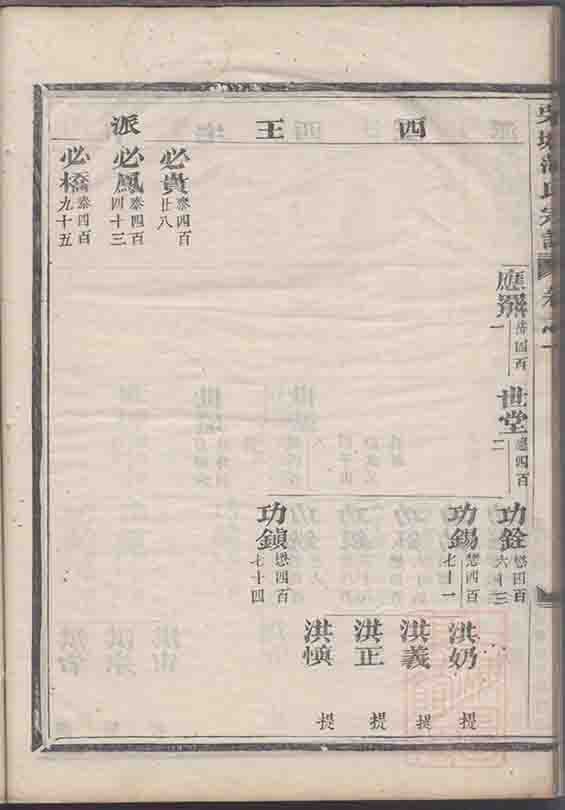 氏宗譜
卷之一
西王派
必貴
泰四百
廿八
必鳳
泰四百
四十三
必橋
泰四百
九十五
應
四百
一
世堂
四百
二
功銓
懋四百
六十三
功錫
懋四百
七十一
功鎮
懋四百
七十四
洪奶
提
洪義
提
洪正
提
洪慎
提